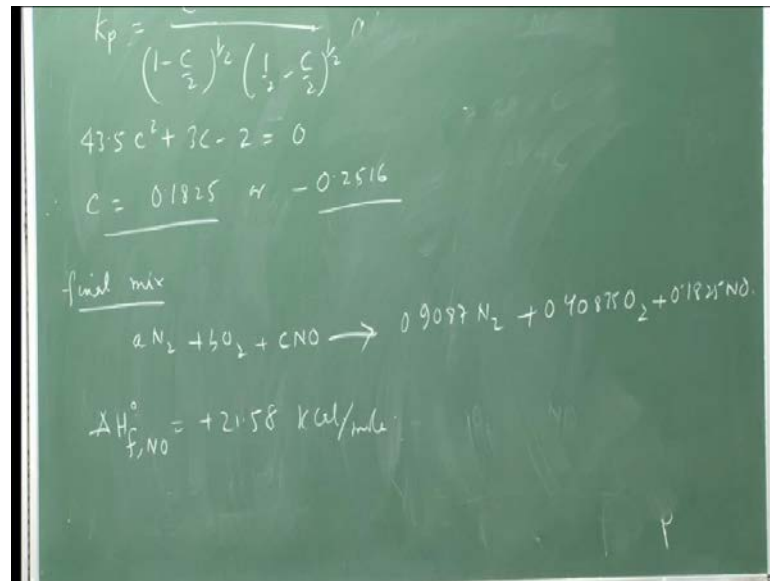 Kp = C / (1 - C/2)^1/2 (1/2 - C/2)^1/2
43.5 C² + 3C - 2 = 0
∴ C = 0.1825 or - 0.2516
final mix
aN₂ + bO₂ + CNO → 0.9087 N₂ + 0.40875 O₂ + 0.1825 NO.
ΔH°f,NO = +21.58 KCal/mole.